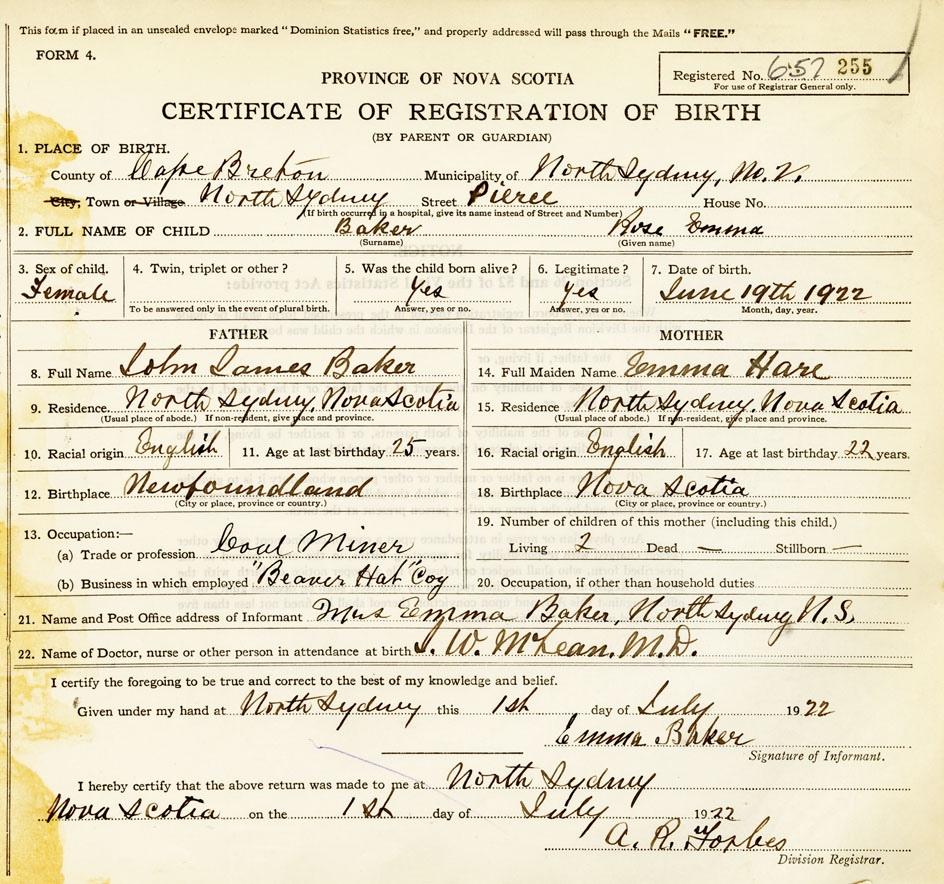 This form if placed in an unsealed envelope marked "Dominion Statistics free," and properly addressed will pass through the Mails "FREE."
FORM 4.
Registered No. 657 255
For use of Registrar General only.
PROVINCE OF NOVA SCOTIA
CERTIFICATE OF REGISTRATION OF BIRTH
(BY PARENT OR GUARDIAN)
1. PLACE OF BIRTH.
County of Cape Breton Municipality of North Sydney, No. V.
City, Town or Village North Sydney Street Pierce House No.
(If birth occurred in a hospital, give its name instead of Street and Number)
2. FULL NAME OF CHILD Baker Rose Emma
(Surname) (Given name)
3. Sex of child. 4. Twin, triplet or other? 5. Was the child born alive? 6. Legitimate? 7. Date of birth.
Female yes yes June 19th 1922
To be answered only in the event of plural birth. Answer, yes or no. Answer, yes or no. Month, day, year.
FATHER MOTHER
8. Full Name John James Baker 14. Full Maiden Name Emma Hare
9. Residence North Sydney, Nova Scotia 15. Residence North Sydney, Nova Scotia
(Usual place of abode.) If non-resident, give place and province. (Usual place of abode.) If non-resident, give place and province.
10. Racial origin English 11. Age at last birthday 25 years. 16. Racial origin English 17. Age at last birthday 22 years.
12. Birthplace Newfoundland 18. Birthplace Nova Scotia
(City or place, province or country.) (City or place, province or country.)
13. Occupation:— 19. Number of children of this mother (including this child.)
(a) Trade or profession Coal Miner Living 2 Dead — Stillborn —
(b) Business in which employed "Beaver Hat" Coy 20. Occupation, if other than household duties
21. Name and Post Office address of Informant Mrs Emma Baker, North Sydney N.S.
22. Name of Doctor, nurse or other person in attendance at birth J. W. McLean. M.D.
I certify the foregoing to be true and correct to the best of my knowledge and belief.
Given under my hand at North Sydney this 1st day of July 1922
Emma Baker
Signature of Informant.
I hereby certify that the above return was made to me at North Sydney
Nova Scotia on the 1st day of July 1922
A. R. Forbes
Division Registrar.